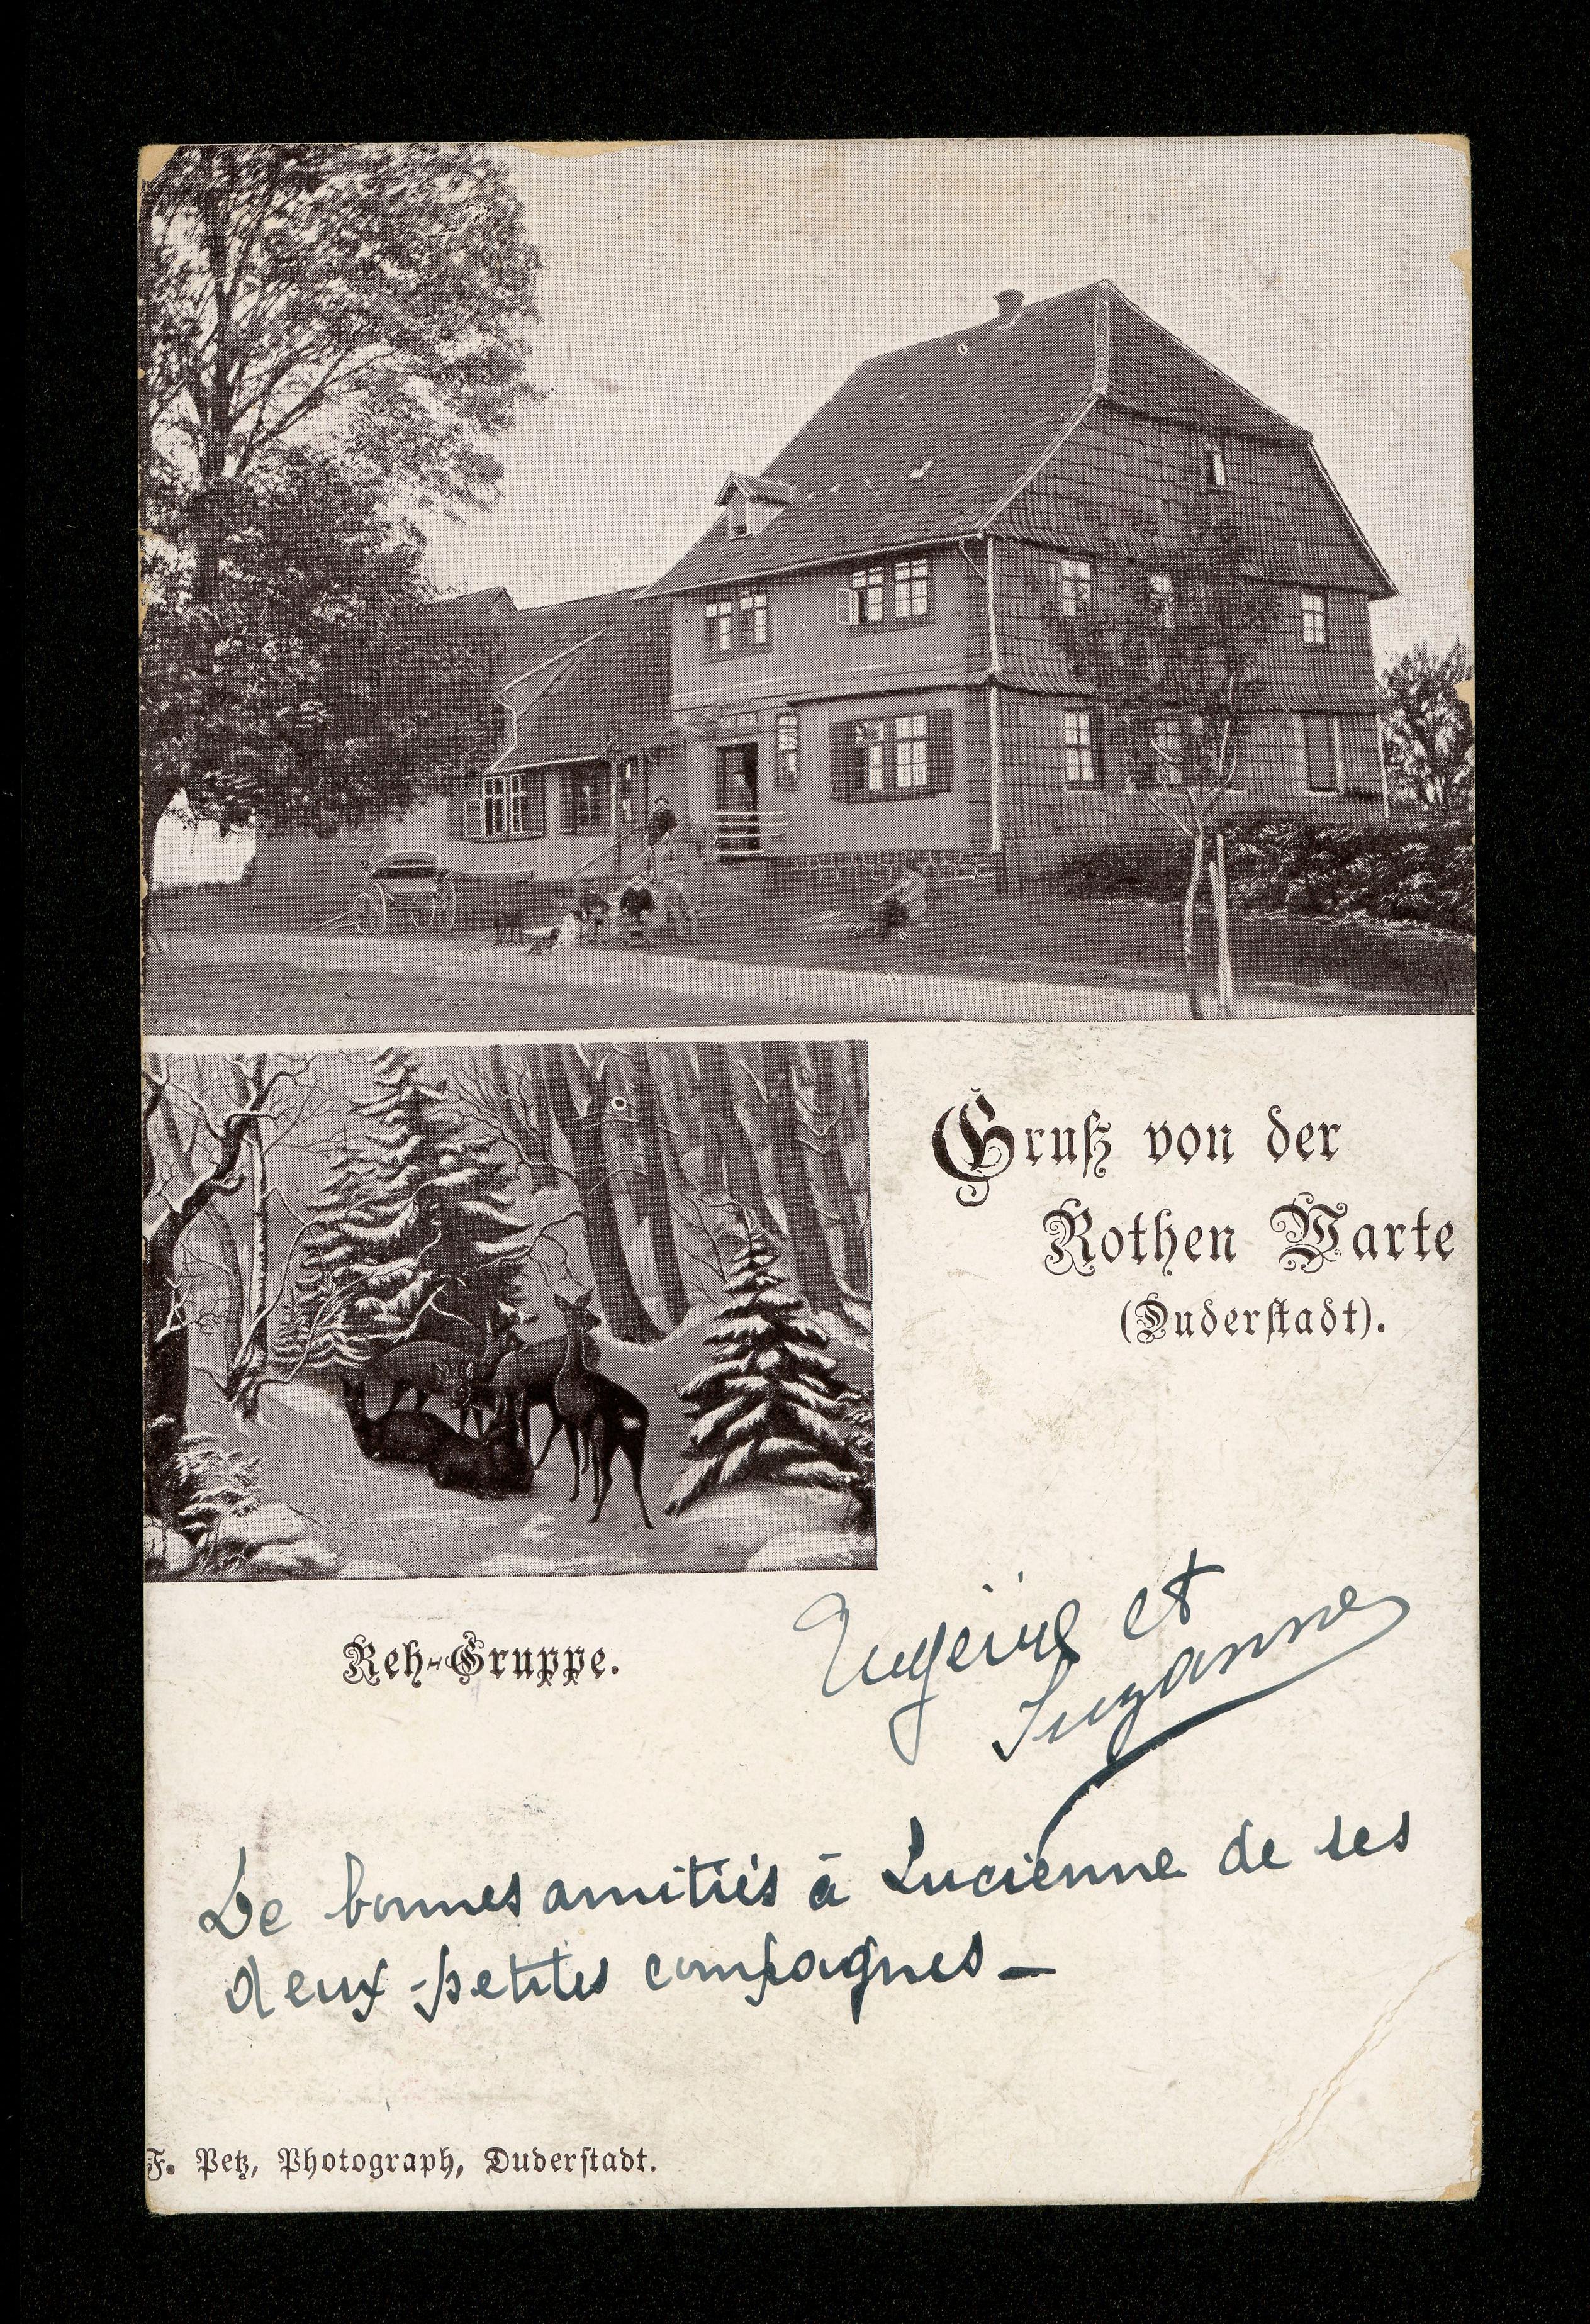 Gruß von der
Rothen Warte
(Duderstadt).
Reh-Gruppe.
Eugénie et
Suzanne
De bonnes amitiés à Lucienne de ses
deux petites compagnes—
F. Petz, Photograph, Duderstadt.